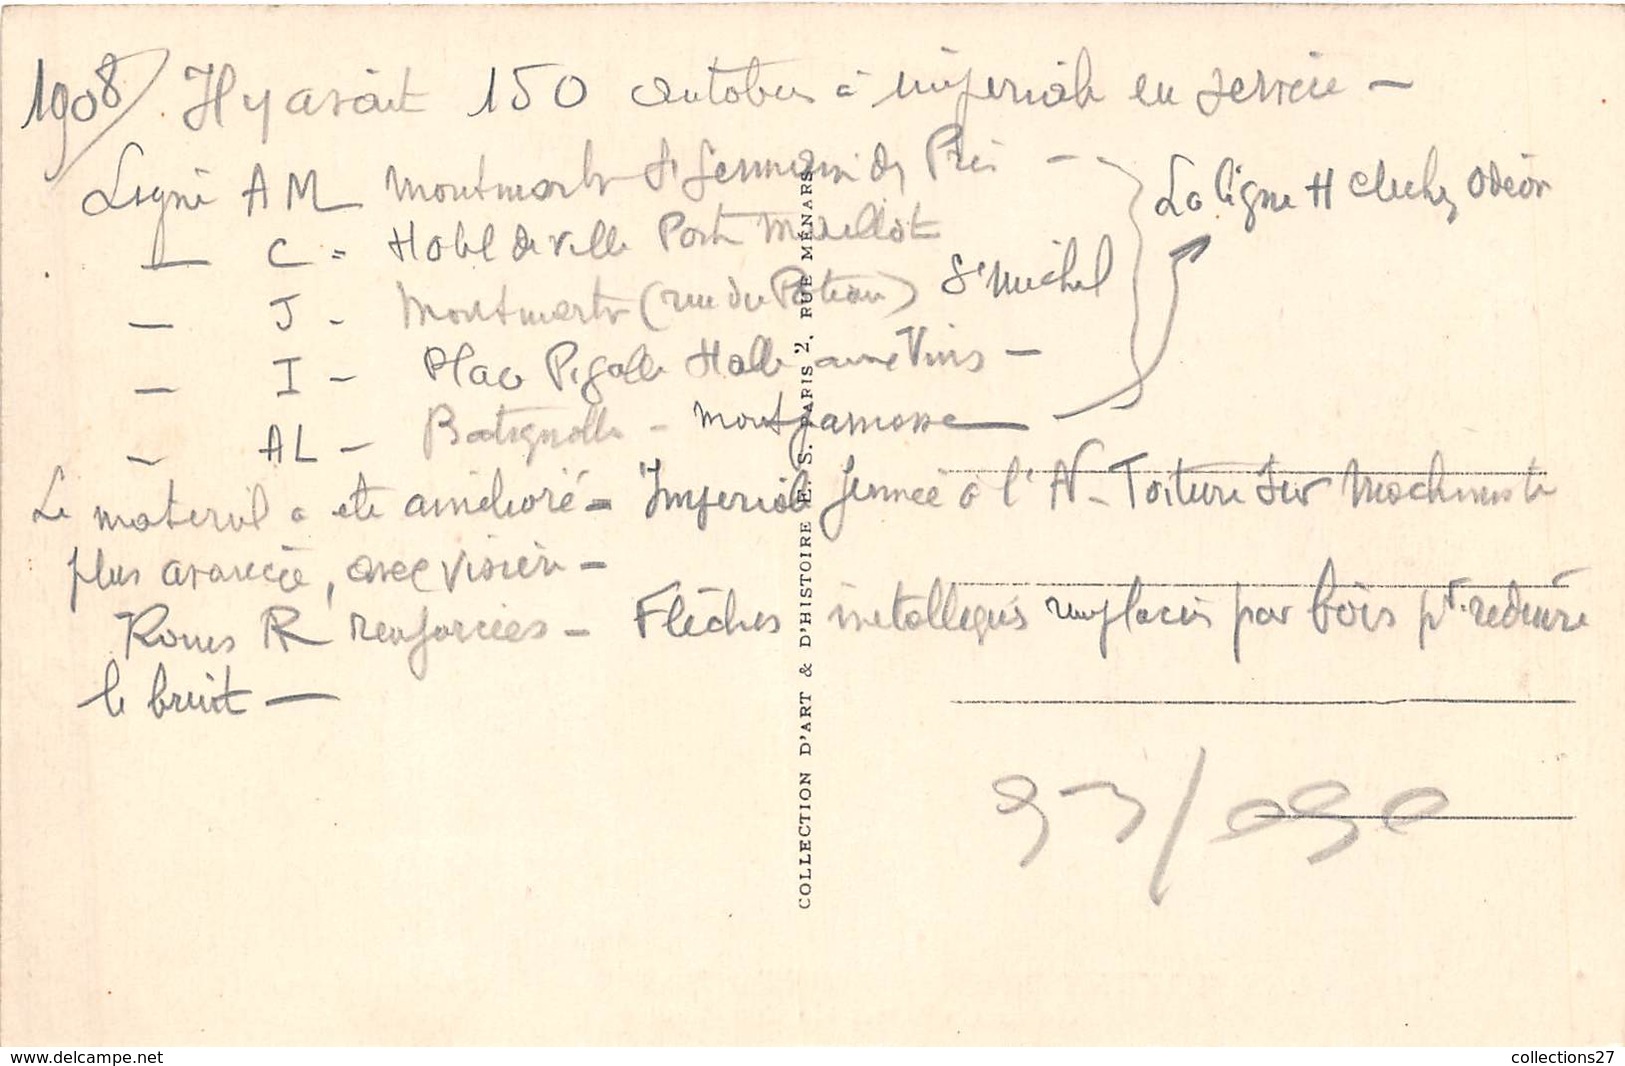 1908 Il y avait 150 autobus à impériale en service -
Ligne AM Montmartre St Germain des Prés -
La ligne H Clichy Odéon
— C - Hotel de Ville Porte Maillot
— J - Montmartre (rue du Poteau) St Michel
— I - Place Pigalle Halle aux Vins -
— AL - Batignolles - Montparnasse
Le materiel a été amélioré - Impériale fermée à l'AV - Toiture sur machiniste
plus avancée, avec visière -
Roues AR renforcées - Flèches métalliques remplacées par bois pr. reduire
le bruit -
93/090
COLLECTION D'ART & D'HISTOIRE E. S. PARIS 2, RUE MÉNARS
www.delcampe.net
collections27